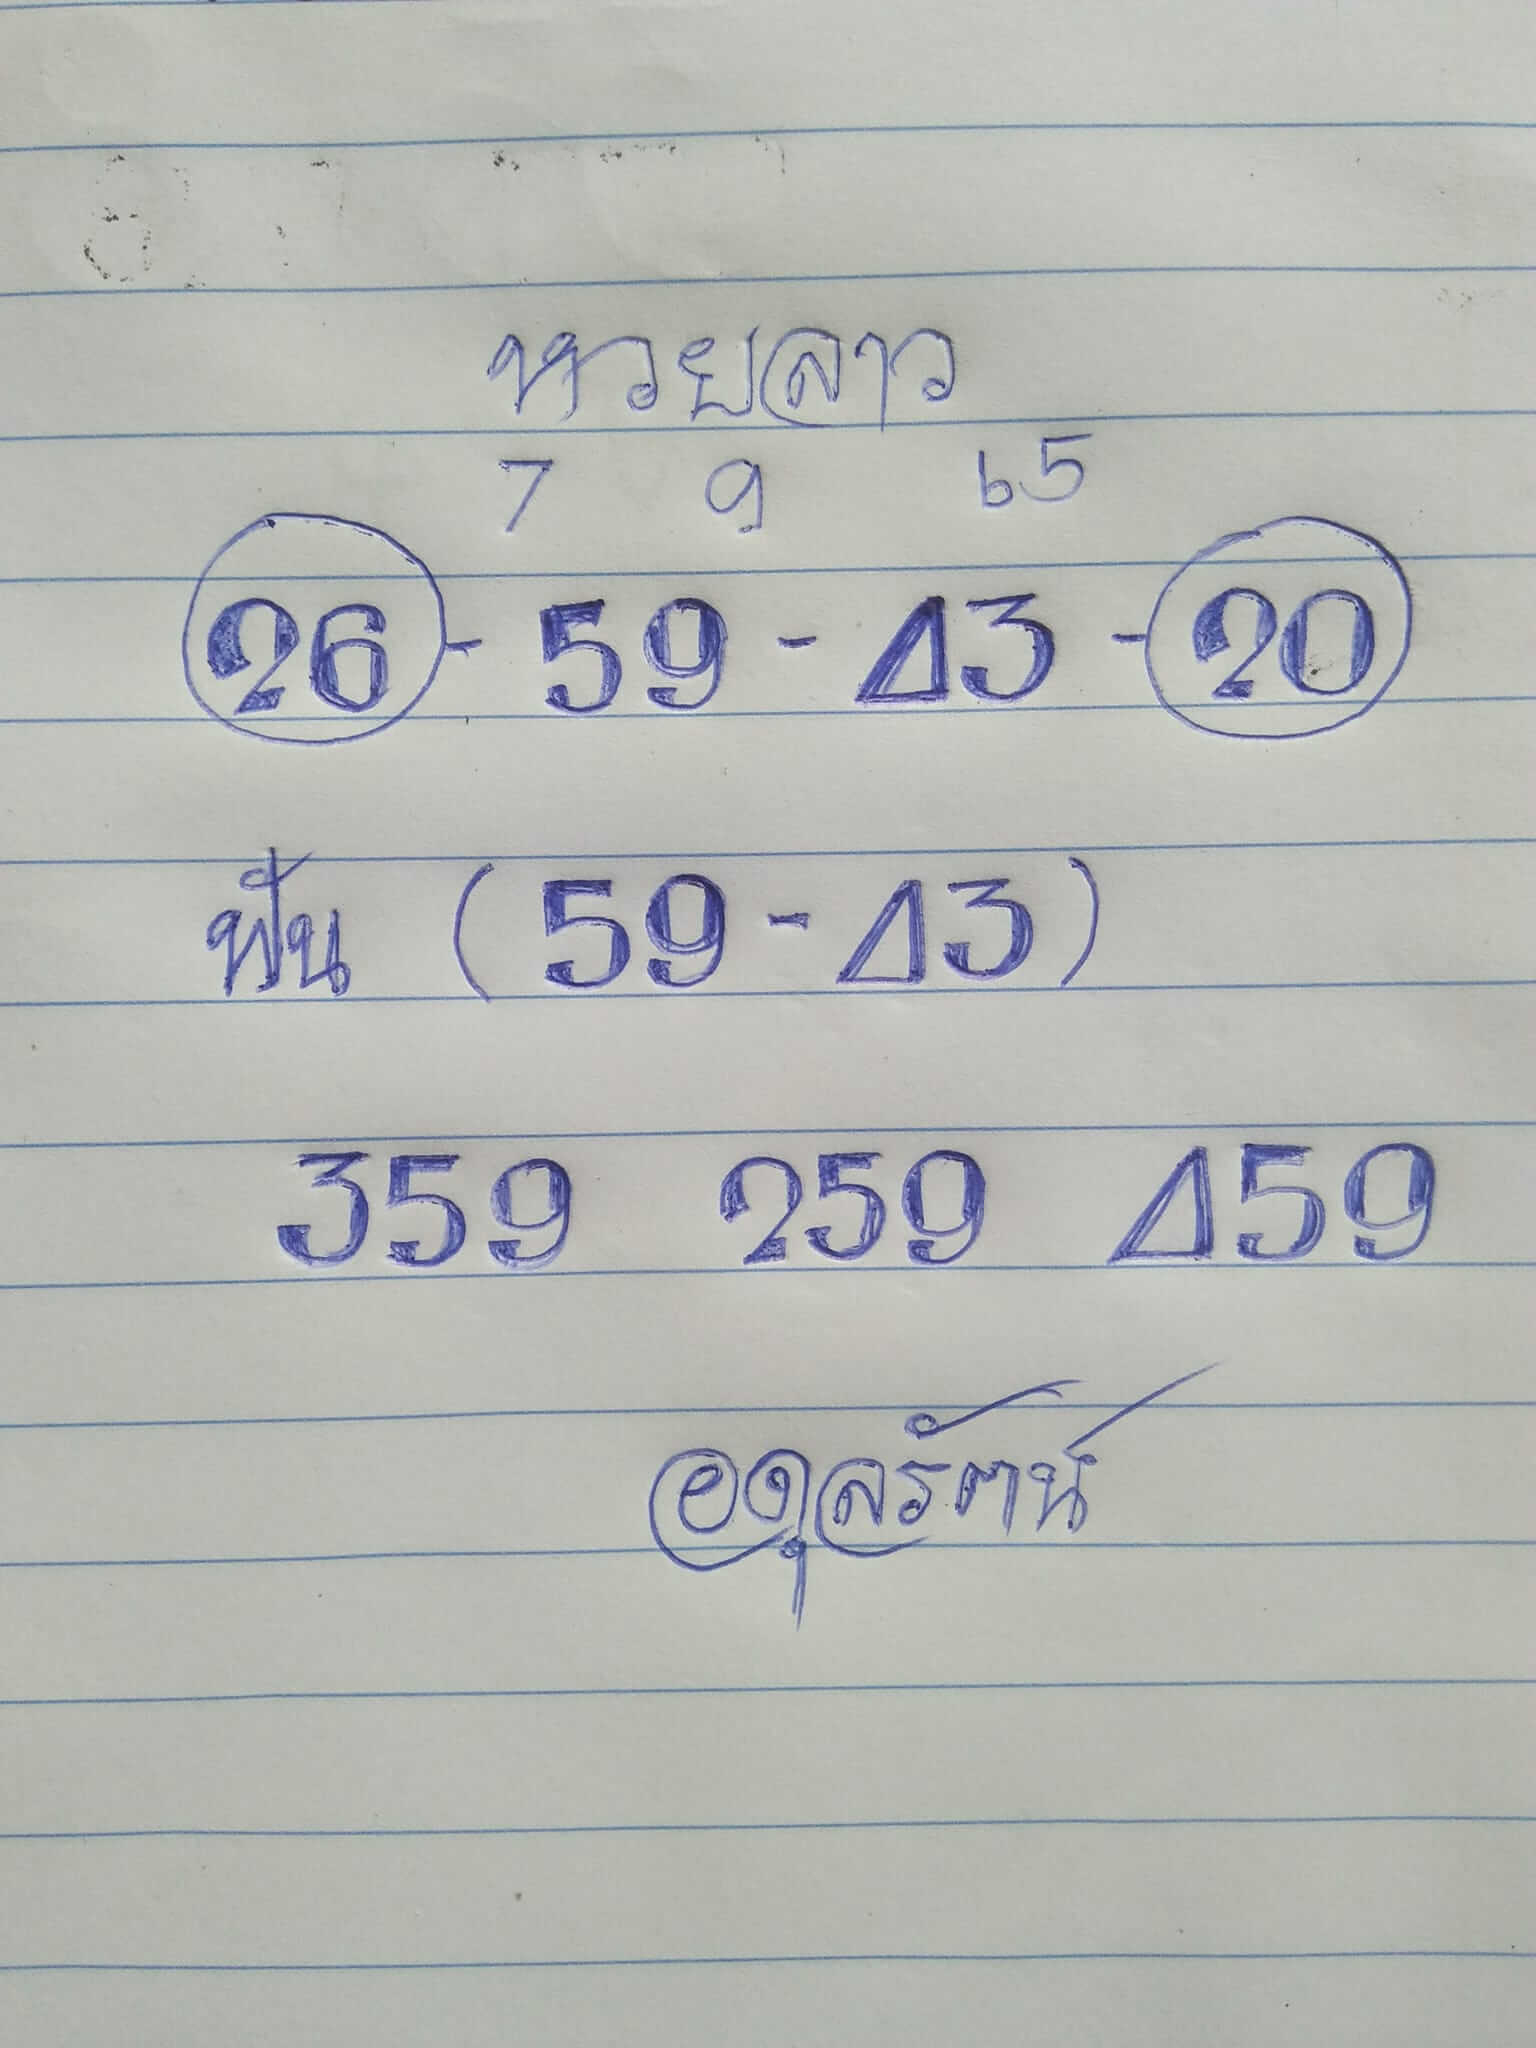 หวยลาว
7 9 65
26 - 59 - 43 - 20
ฟัน (59 - 43)
359 259 459
อดุลรัตน์